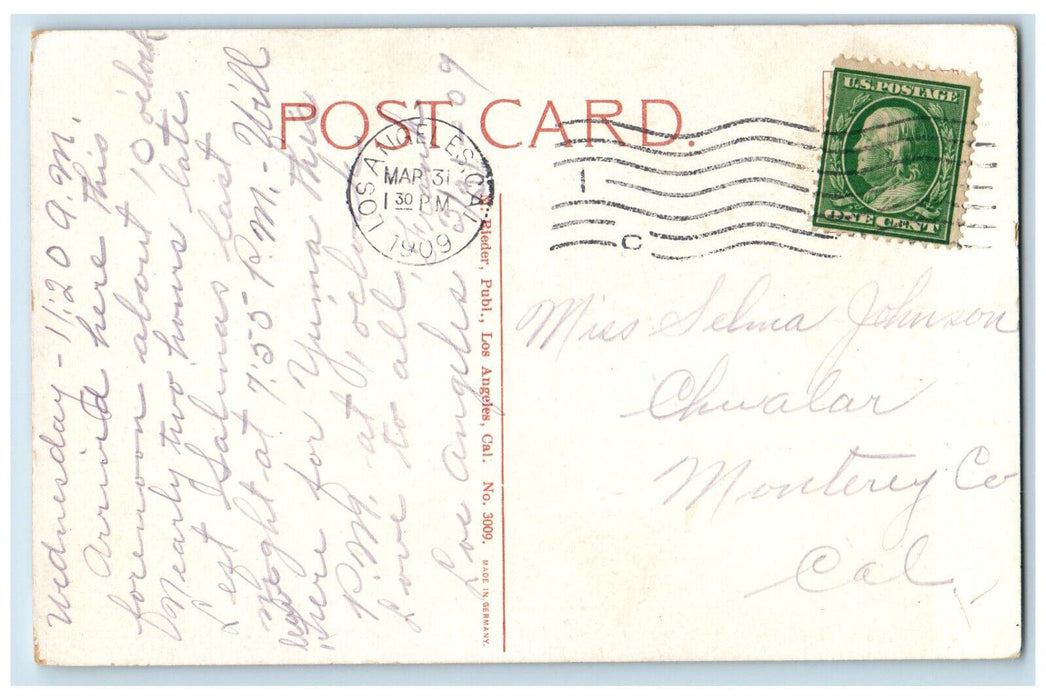 POST CARD.
LOS ANGELES, CAL.
MAR 31
1 30 PM
1909
1
C
U.S. POSTAGE
ONE CENT
Wednesday - 11:20 A.M.
Arrived here this
forenoon about 10 o'clock
Nearly two hours late.
Left Salinas last
night at 7:55 P.M. Will
leave here for Yuma this
P.M. at o'clock
Love to all,
Los Angeles
09
Rieder, Publ., Los Angeles, Cal. No. 3009. MADE IN GERMANY.
Miss Selma Johnson
Chualar
Monterey Co
Cal.